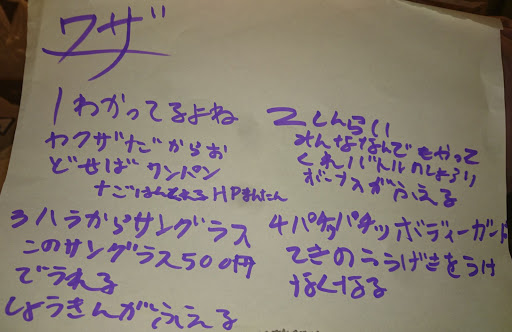 ワザ
1 わかってるよね
ヤクザだからお
どせばワンパン
ごはんでHPまんたん
2 しんらい
みんななんでもやって
くれバトルのしょうり
ボーナスがふえる
3 ハラからサングラス
このサングラス500円
でうれる
しょうきんがふえる
4 パチッパチッボディーガード
てきのこうげきをうけ
なくなる